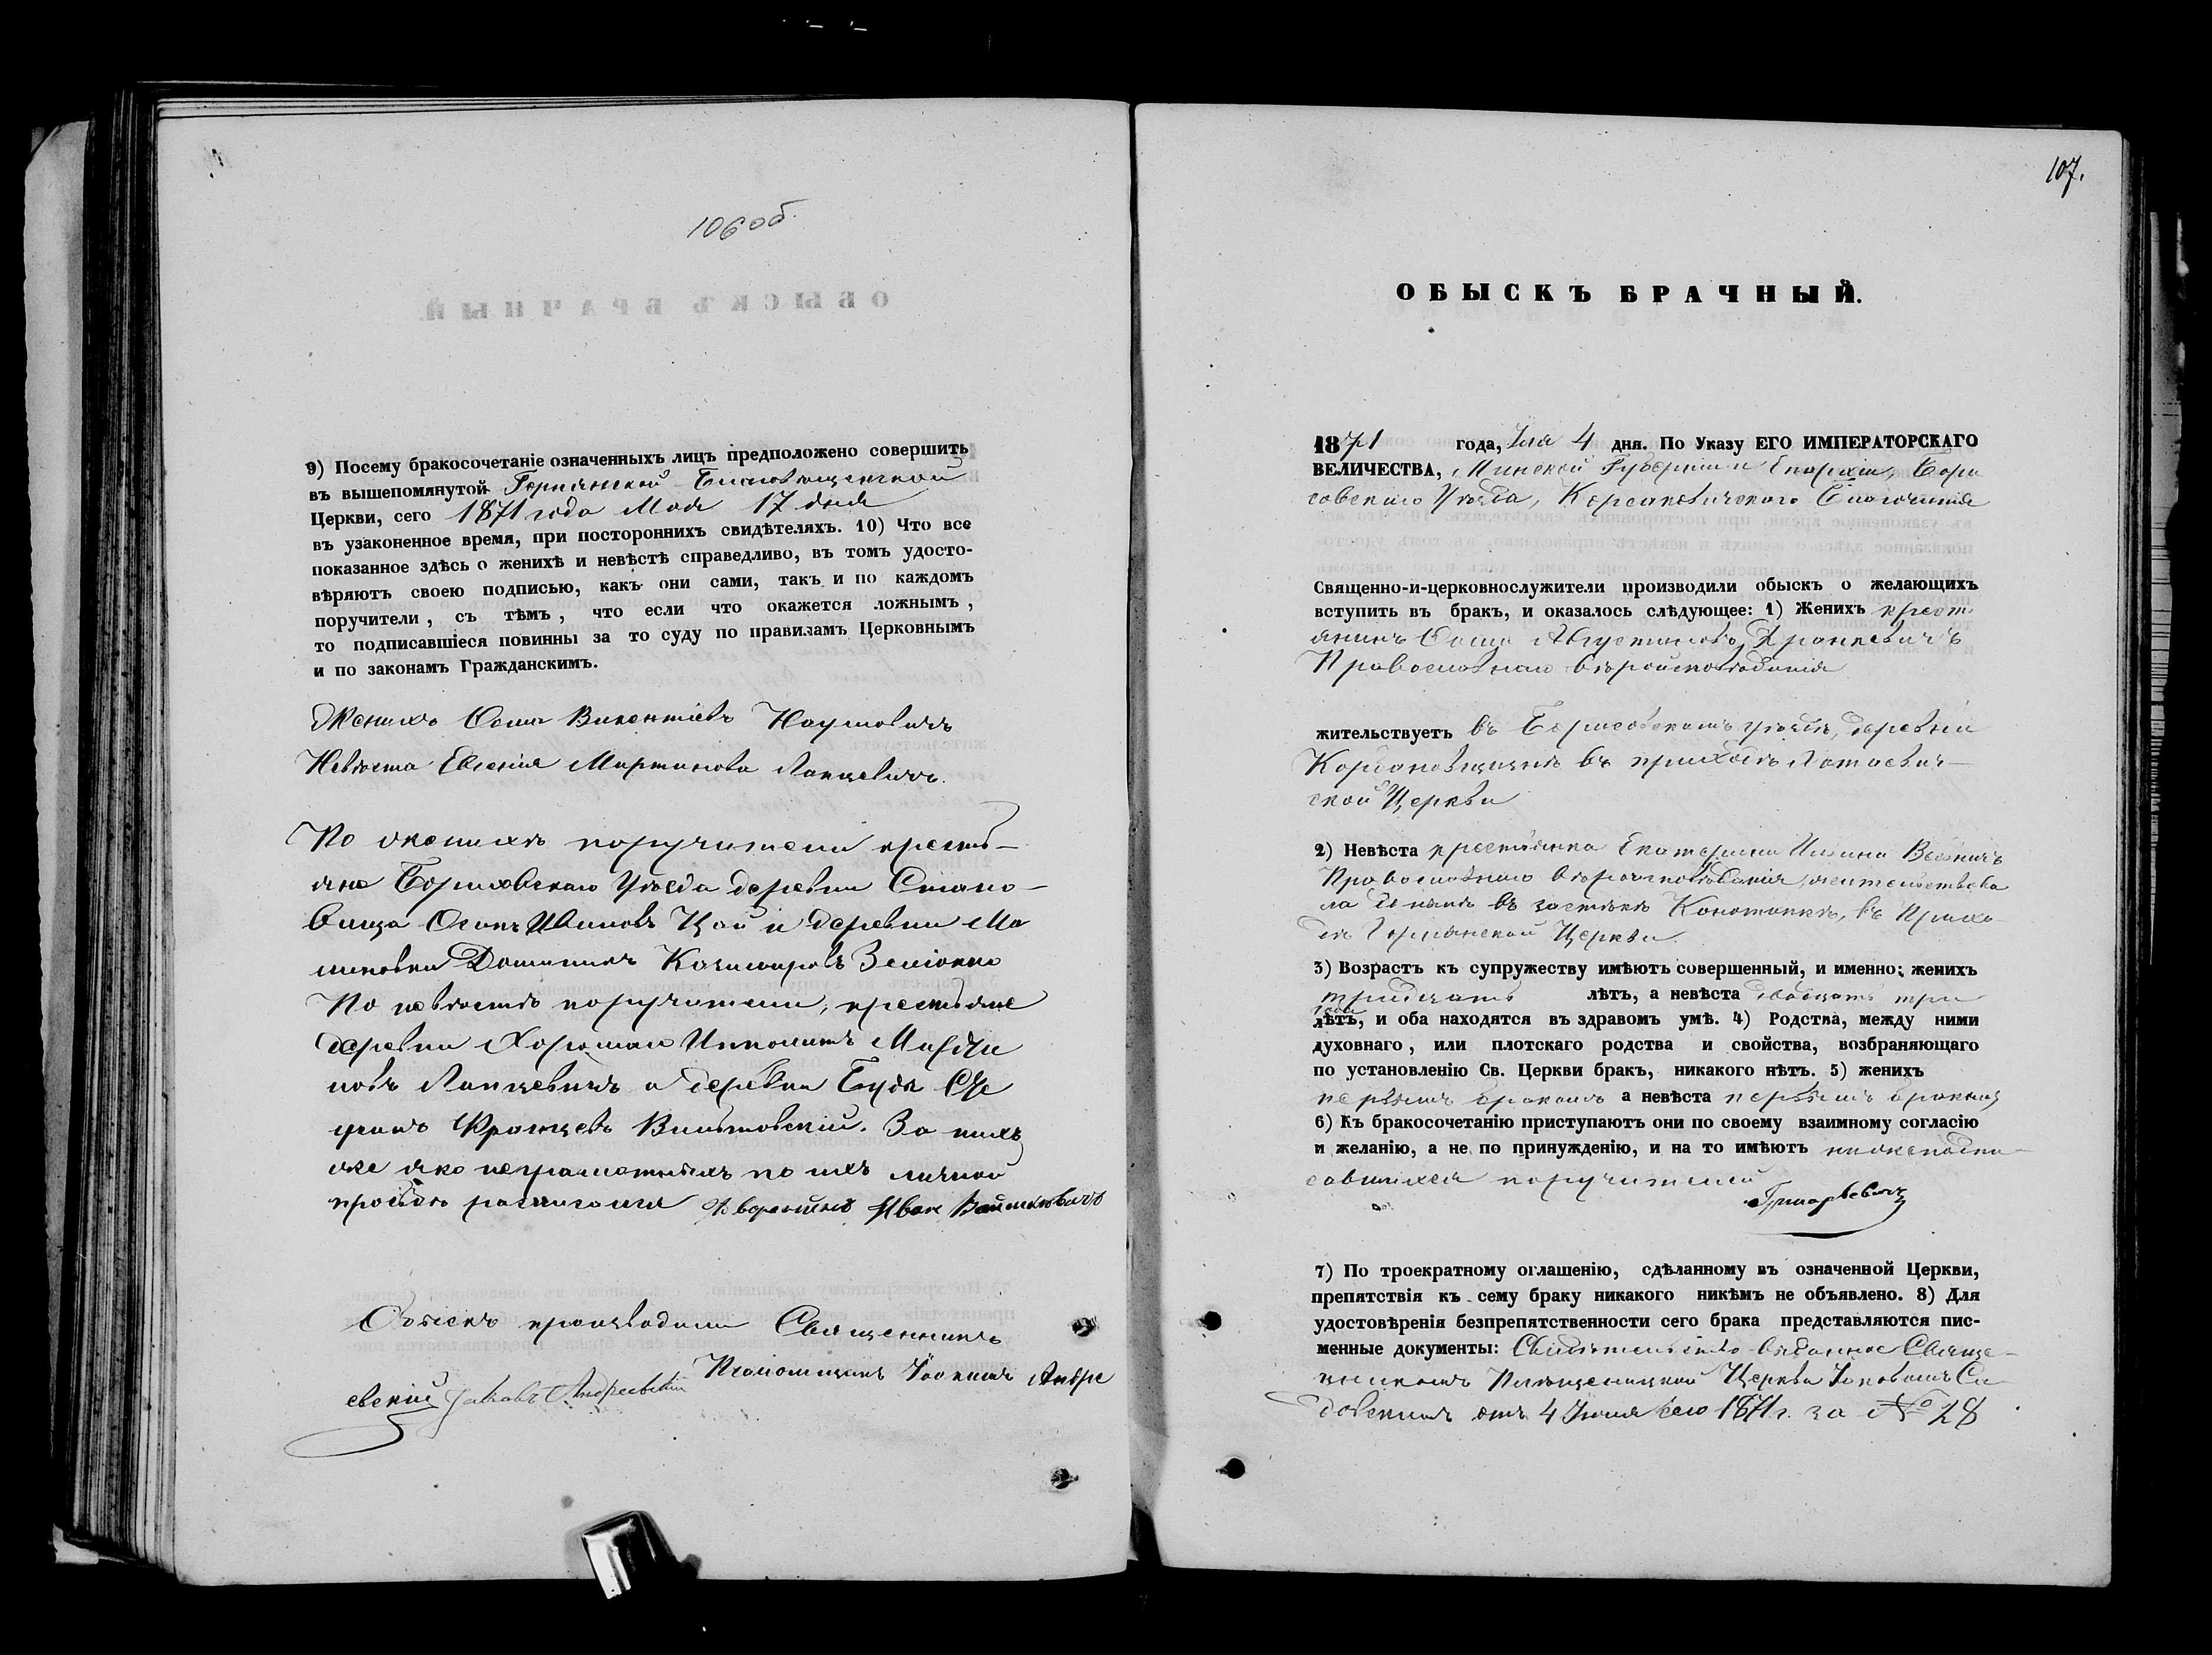 106 об.
9) Посему бракосочетаніе означенныхъ лицъ предположено совершить
въ вышепомянутой
Церкви, сего 1871 года Мая 17 дня
въ узаконенное время, при постороннихъ свидѣтеляхъ. 10) Что все
показанное здѣсь о женихѣ и невѣстѣ справедливо, въ томъ удосто-
вѣряютъ своею подписью, какъ они сами, такъ и по каждомъ
поручители, съ тѣмъ, что если что окажется ложнымъ,
то подписавшіеся повинны за то суду по правиламъ Церковнымъ
и по законамъ Гражданскимъ.
Женихъ Осипъ Викентіевъ Наумовичъ
Невѣста Евгенія Мартинова Лапцевичъ.
По женихѣ поручители кресть-
яне Борисовскаго Уѣзда деревни Стано-
вища Осипъ Ивановъ Цой и деревни
Доминикъ Казимировъ
По невѣстѣ поручители, крестьяне
деревни Иполитъ Марти
новъ Лапцевичъ и деревни Буда
Францевъ За нихъ
же яко неграмотныхъ по ихъ личной
просьбѣ Дворянинъ Иван
Обыскъ производили Священникъ
Псаломщикъ Андре
евскій
107.
ОБЫСКЪ БРАЧНЫЙ.
1871 года, 4 дня. По Указу ЕГО ИМПЕРАТОРСКАГО
ВЕЛИЧЕСТВА, Минской Губерніи и Епархіи, Бори
совскаго Уѣзда, Благочинія
Священно-и-церковнослужители производили обыскъ о желающихъ
вступить въ бракъ, и оказалось слѣдующее: 1) Женихъ крест
янинъ Осипъ Августиновъ
Православнаго вѣроисповѣданія
жительствуетъ въ Борисовскомъ уѣздѣ, деревни
въ приходѣ
ской Церкви
2) Невѣста крестьянка Екатерина
Православнаго вѣроисповѣданія, жительствова
ла до нынѣ въ застѣнкѣ въ Прихо
дѣ Церкви.
3) Возрастъ къ супружеству имѣютъ совершенный, и именно: женихъ
тридцать лѣтъ, а невѣста двадцать три
года
лѣтъ, и оба находятся въ здравомъ умѣ. 4) Родства, между ними
духовнаго, или плотскаго родства и свойства, возбраняющаго
по установленію Св. Церкви бракъ, никакого нѣтъ. 5) женихъ
первымъ бракомъ а невѣста первымъ бракомъ
6) Къ бракосочетанію приступаютъ они по своему взаимному согласію
и желанію, а не по принужденію, и на то имѣютъ нижеподпи-
савшихся поручителей
Григорьевич
7) По троекратному оглашенію, сдѣланному въ означенной Церкви,
препятствія къ сему браку никакого никѣмъ не объявлено. 8) Для
удостовѣренія безпрепятственности сего брака представляются пис-
менные документы: Свидѣтельство выданное Свяще-
нникомъ Церкви Іаковомъ Са
довскимъ отъ 4 Іюня сего 1871 г. за № 28